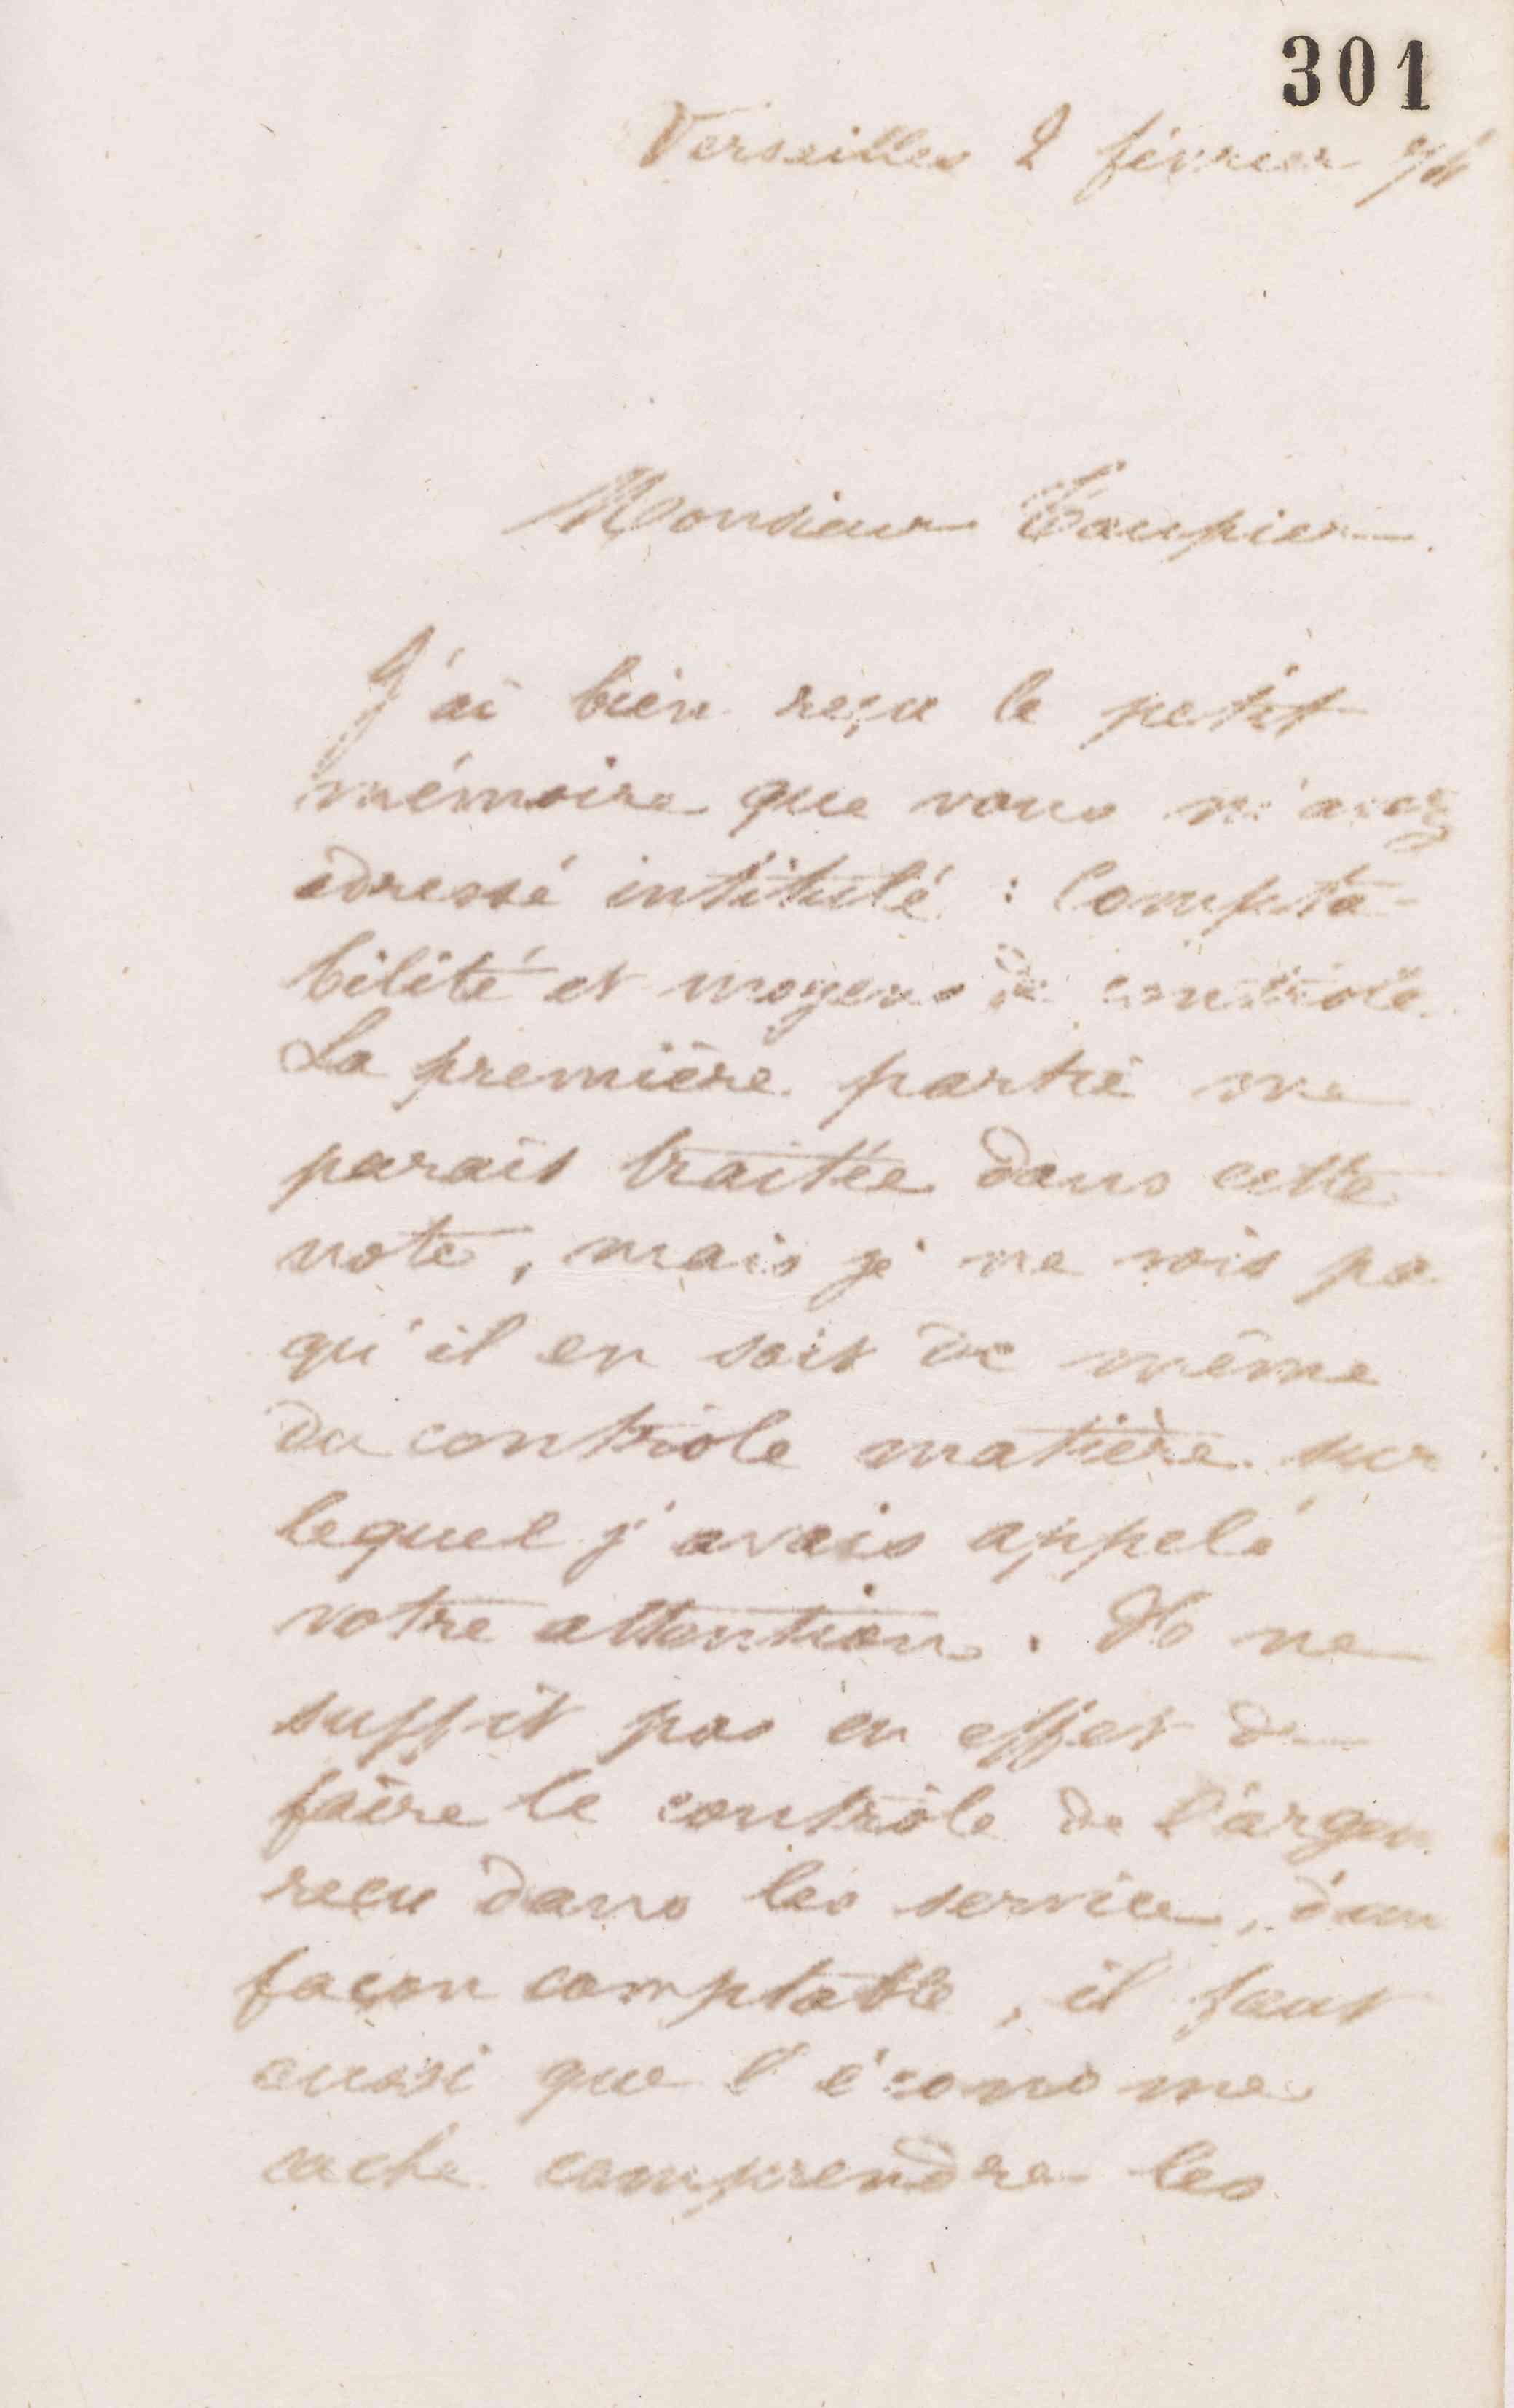 301
Versailles 2 février
Monsieur
J'ai bien reçu le petit
mémoire que vous m'avez
adressé intitulé : Compta-
bilité et moyens de contrôle.
La première partie me
parait traitée dans cette
note, mais je ne vois pa
qu'il en soit de même
du contrôle matière sur
lequel j'avais appelé
votre attention. Il ne
suffit pas en effet de
faire le contrôle de l'argen
recu dans les service, d'un
façon comptable, il faut
aussi que l'économe
sache comprendre les